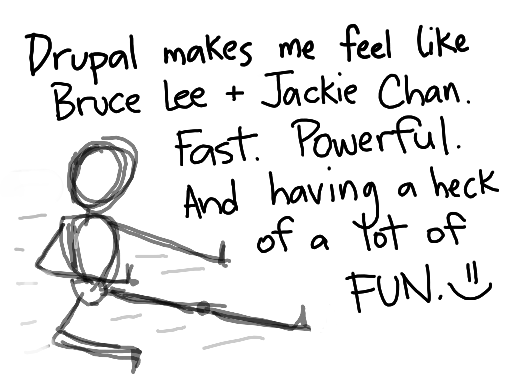 Drupal makes me feel like
Bruce Lee + Jackie Chan.
Fast. Powerful.
And having a heck
of a lot of
FUN.